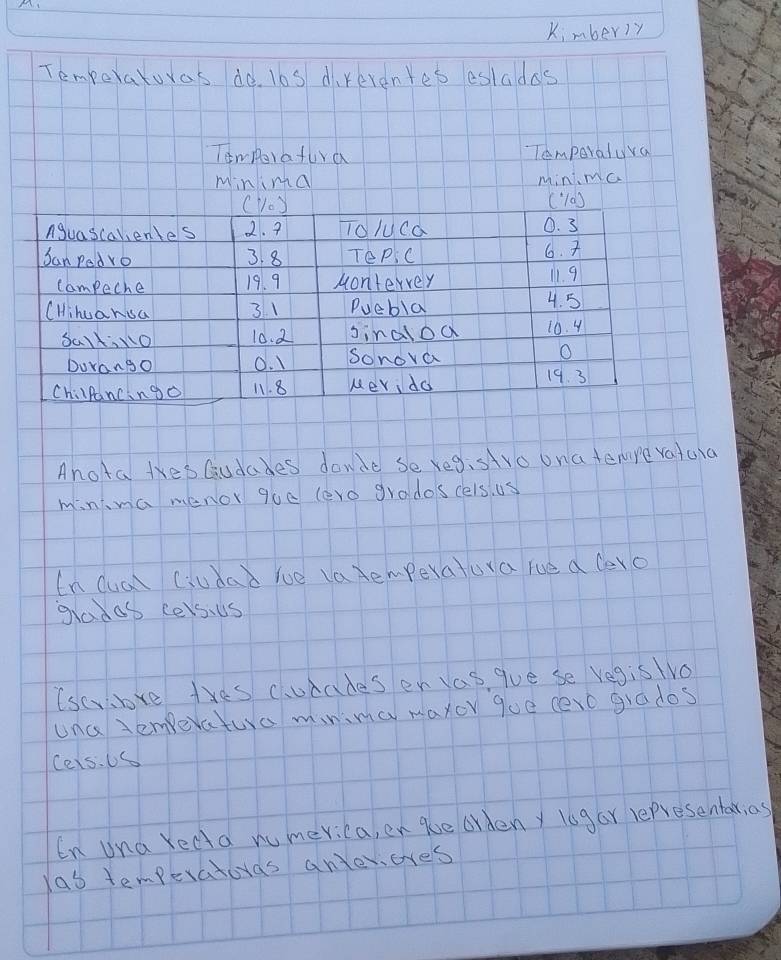 Kimberly
Temperaturas de los diferentes estados
Temperatura Temperatura
minima minima
(%) (%)
Aguascalientes 2.7 Toluca 0.3
San Pedro 3.8 Tepic 6.7
Campeche 19.9 Monterrey 11.9
CHihuahua 3.1 Puebla 4.5
Saltillo 10.2 Sinaloa 10.4
Durango 0.1 Sonora 0
Chilpancingo 11.8 Merida 19.3
Anota tres Ciudades donde se registro una temperatura
minima menor que cero grados celsius
En cual Ciudad fue la temperatura fue a Cero
grados celsius
Escribre tres ciudades en las que se registro
una temperatura minima mayor que cero grados
Celsius
En una recta numerica, en que orden y lugar representarias
las temperaturas anteriores